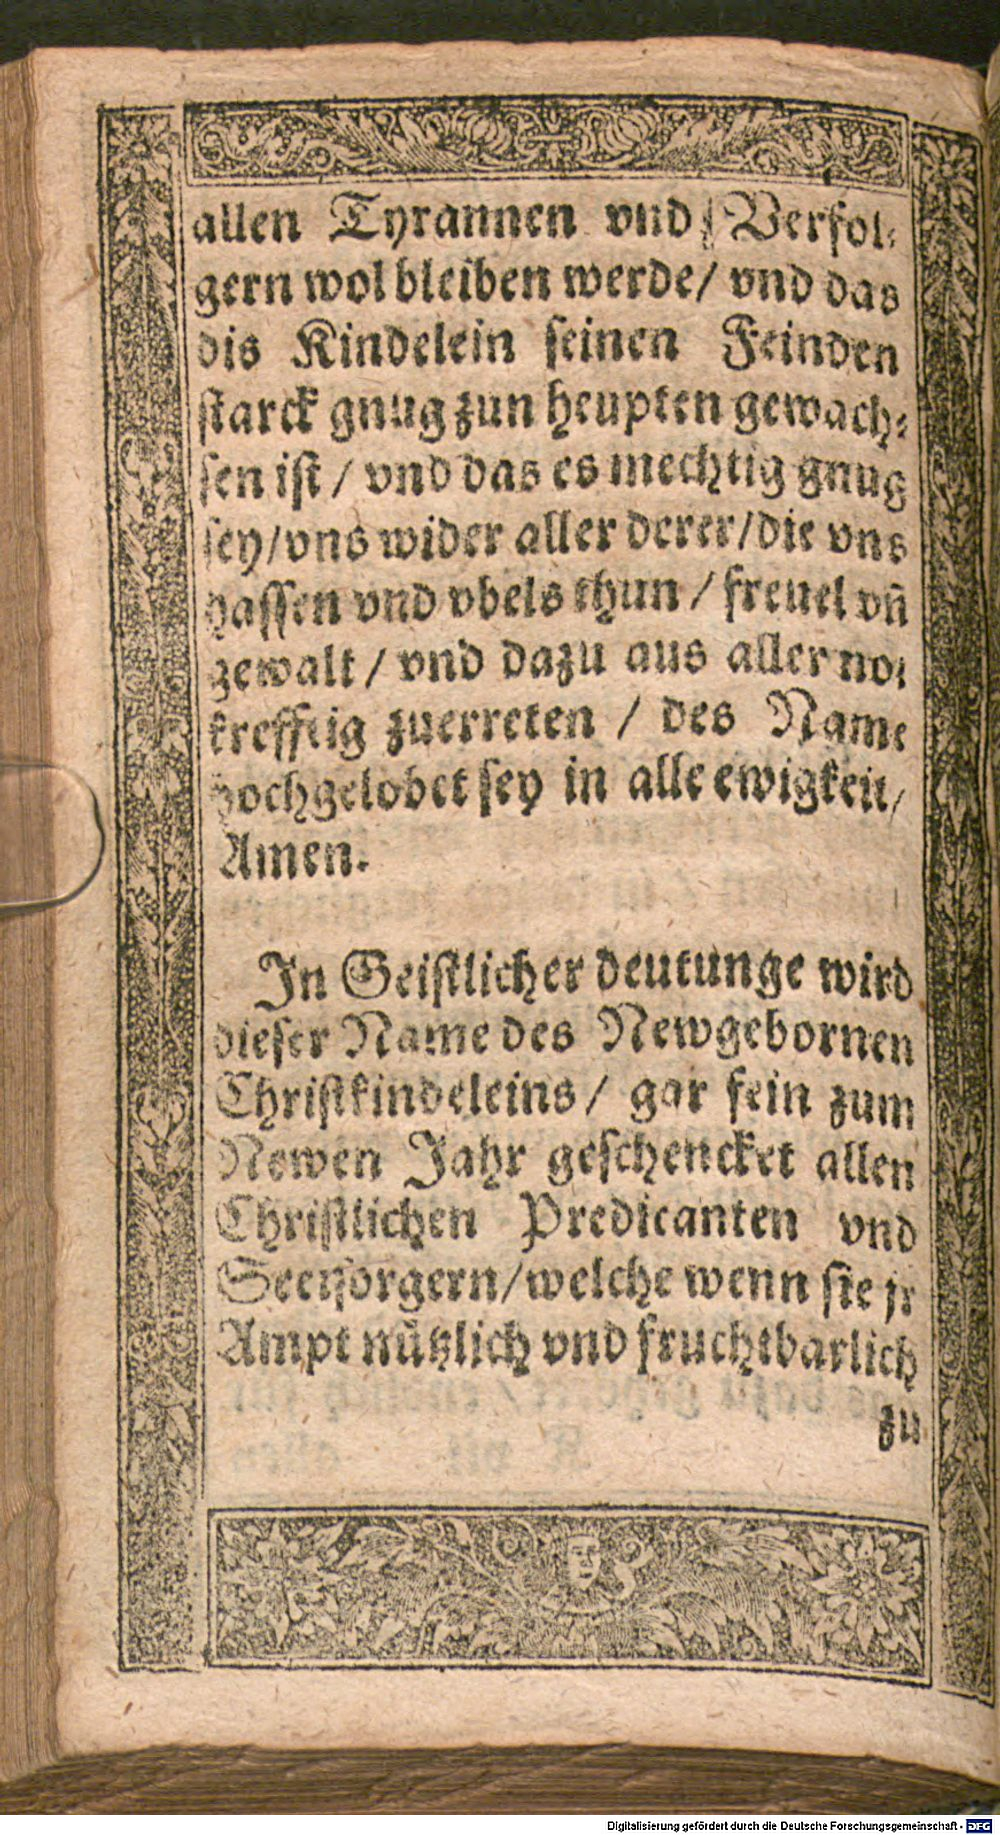 allen Tyrannen vnd Verfol⸗
gern wol bleiben werde/ vnd das
dis Kindelein seinen Feinden
starck gnug zun heupten gewach⸗
sen ist / vnd das es mechtig gnug
sey/vns wider aller derer/die vns
hassen vnd vbels thun / freuel vñ
gewalt / vnd dazu aus aller not
krefftig zuerreten / des Name
hochgelobet sey in alle ewigkeit/
Amen.
In Geistlicher deutunge wird
dieser Name des Newgebornen
Christkindeleins/ gar fein zum
Newen Jahr geschencket allen
Christlichen Predicanten vnd
Seelsorgern/welche wenn sie jr
Ampt nützlich vnd fruchtbarlich
zu
Digitalisierung gefördert durch die Deutsche Forschungsgemeinschaft - DFG